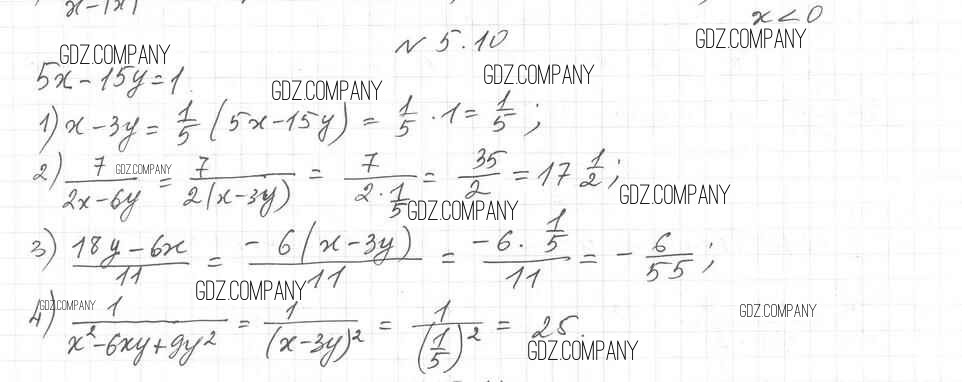 x-|x|
x<0
№ 5.10
GDZ.COMPANY GDZ.COMPANY
5x-15y=1 GDZ.COMPANY GDZ.COMPANY
1) x-3y = 1/5 (5x-15y) = 1/5 · 1 = 1/5 ;
2) 7/(2x-6y) = 7/(2(x-3y)) = 7/(2·1/5) = 35/2 = 17 1/2 ;
GDZ.COMPANY GDZ.COMPANY GDZ.COMPANY
3) (18y-6x)/11 = (-6(x-3y))/11 = (-6·1/5)/11 = -6/55 ;
GDZ.COMPANY GDZ.COMPANY GDZ.COMPANY
4) 1/(x²-6xy+9y²) = 1/(x-3y)² = 1/(1/5)² = 25.
GDZ.COMPANY